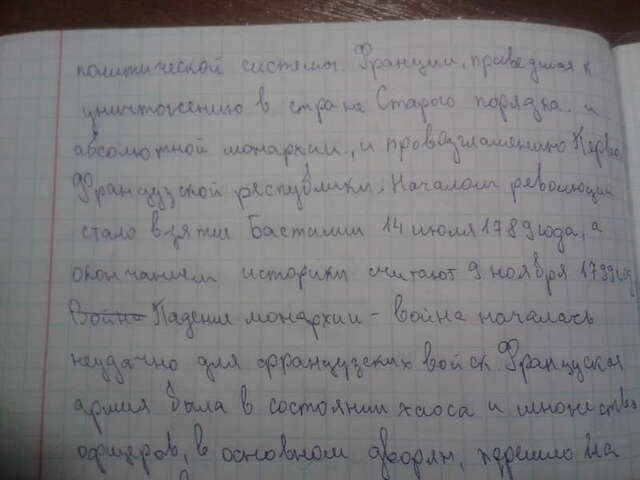 политической системы Франции, приведшая к
уничтожению в стране Старого порядка и
абсолютной монархии, и провозглашению Перво
Французской республики. Началом революции
стало взятие Бастилии 14 июля 1789 года, а
окончанием историки считают 9 ноября 1799
Война Падение монархии - война началась
неудачно для французских войск. Француская
армия была в состоянии хаоса и множество
офицеров, в основном дворян, перешло на